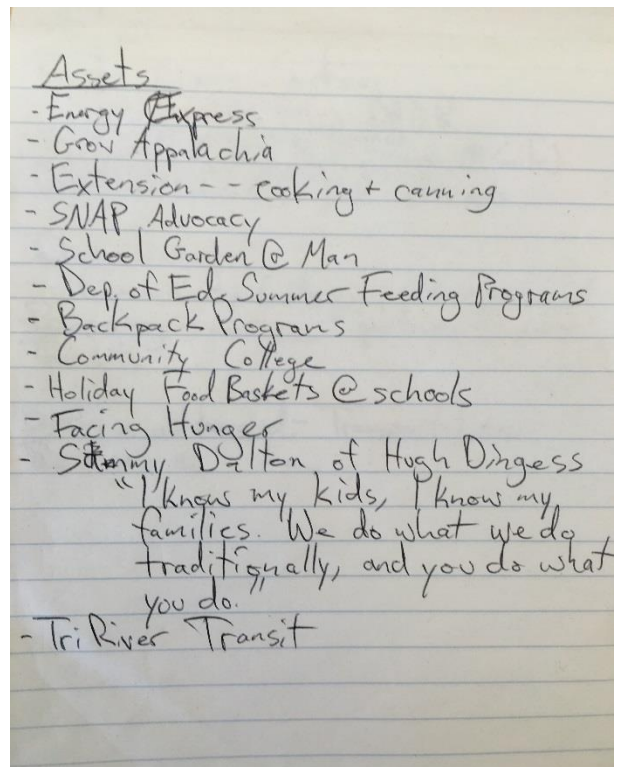 Assets
- Energy Express
- Grow Appalachia
- Extension -- cooking + canning
- SNAP Advocacy
- School Garden @ Man
- Dep. of Ed. Summer Feeding Programs
- Backpack Programs
- Community College
- Holiday Food Baskets @ schools
- Facing Hunger
- Dalton of Hugh Dingess
"I know my kids, I know my
families. We do what we do
traditionally, and you do what
you do."
- Tri River Transit